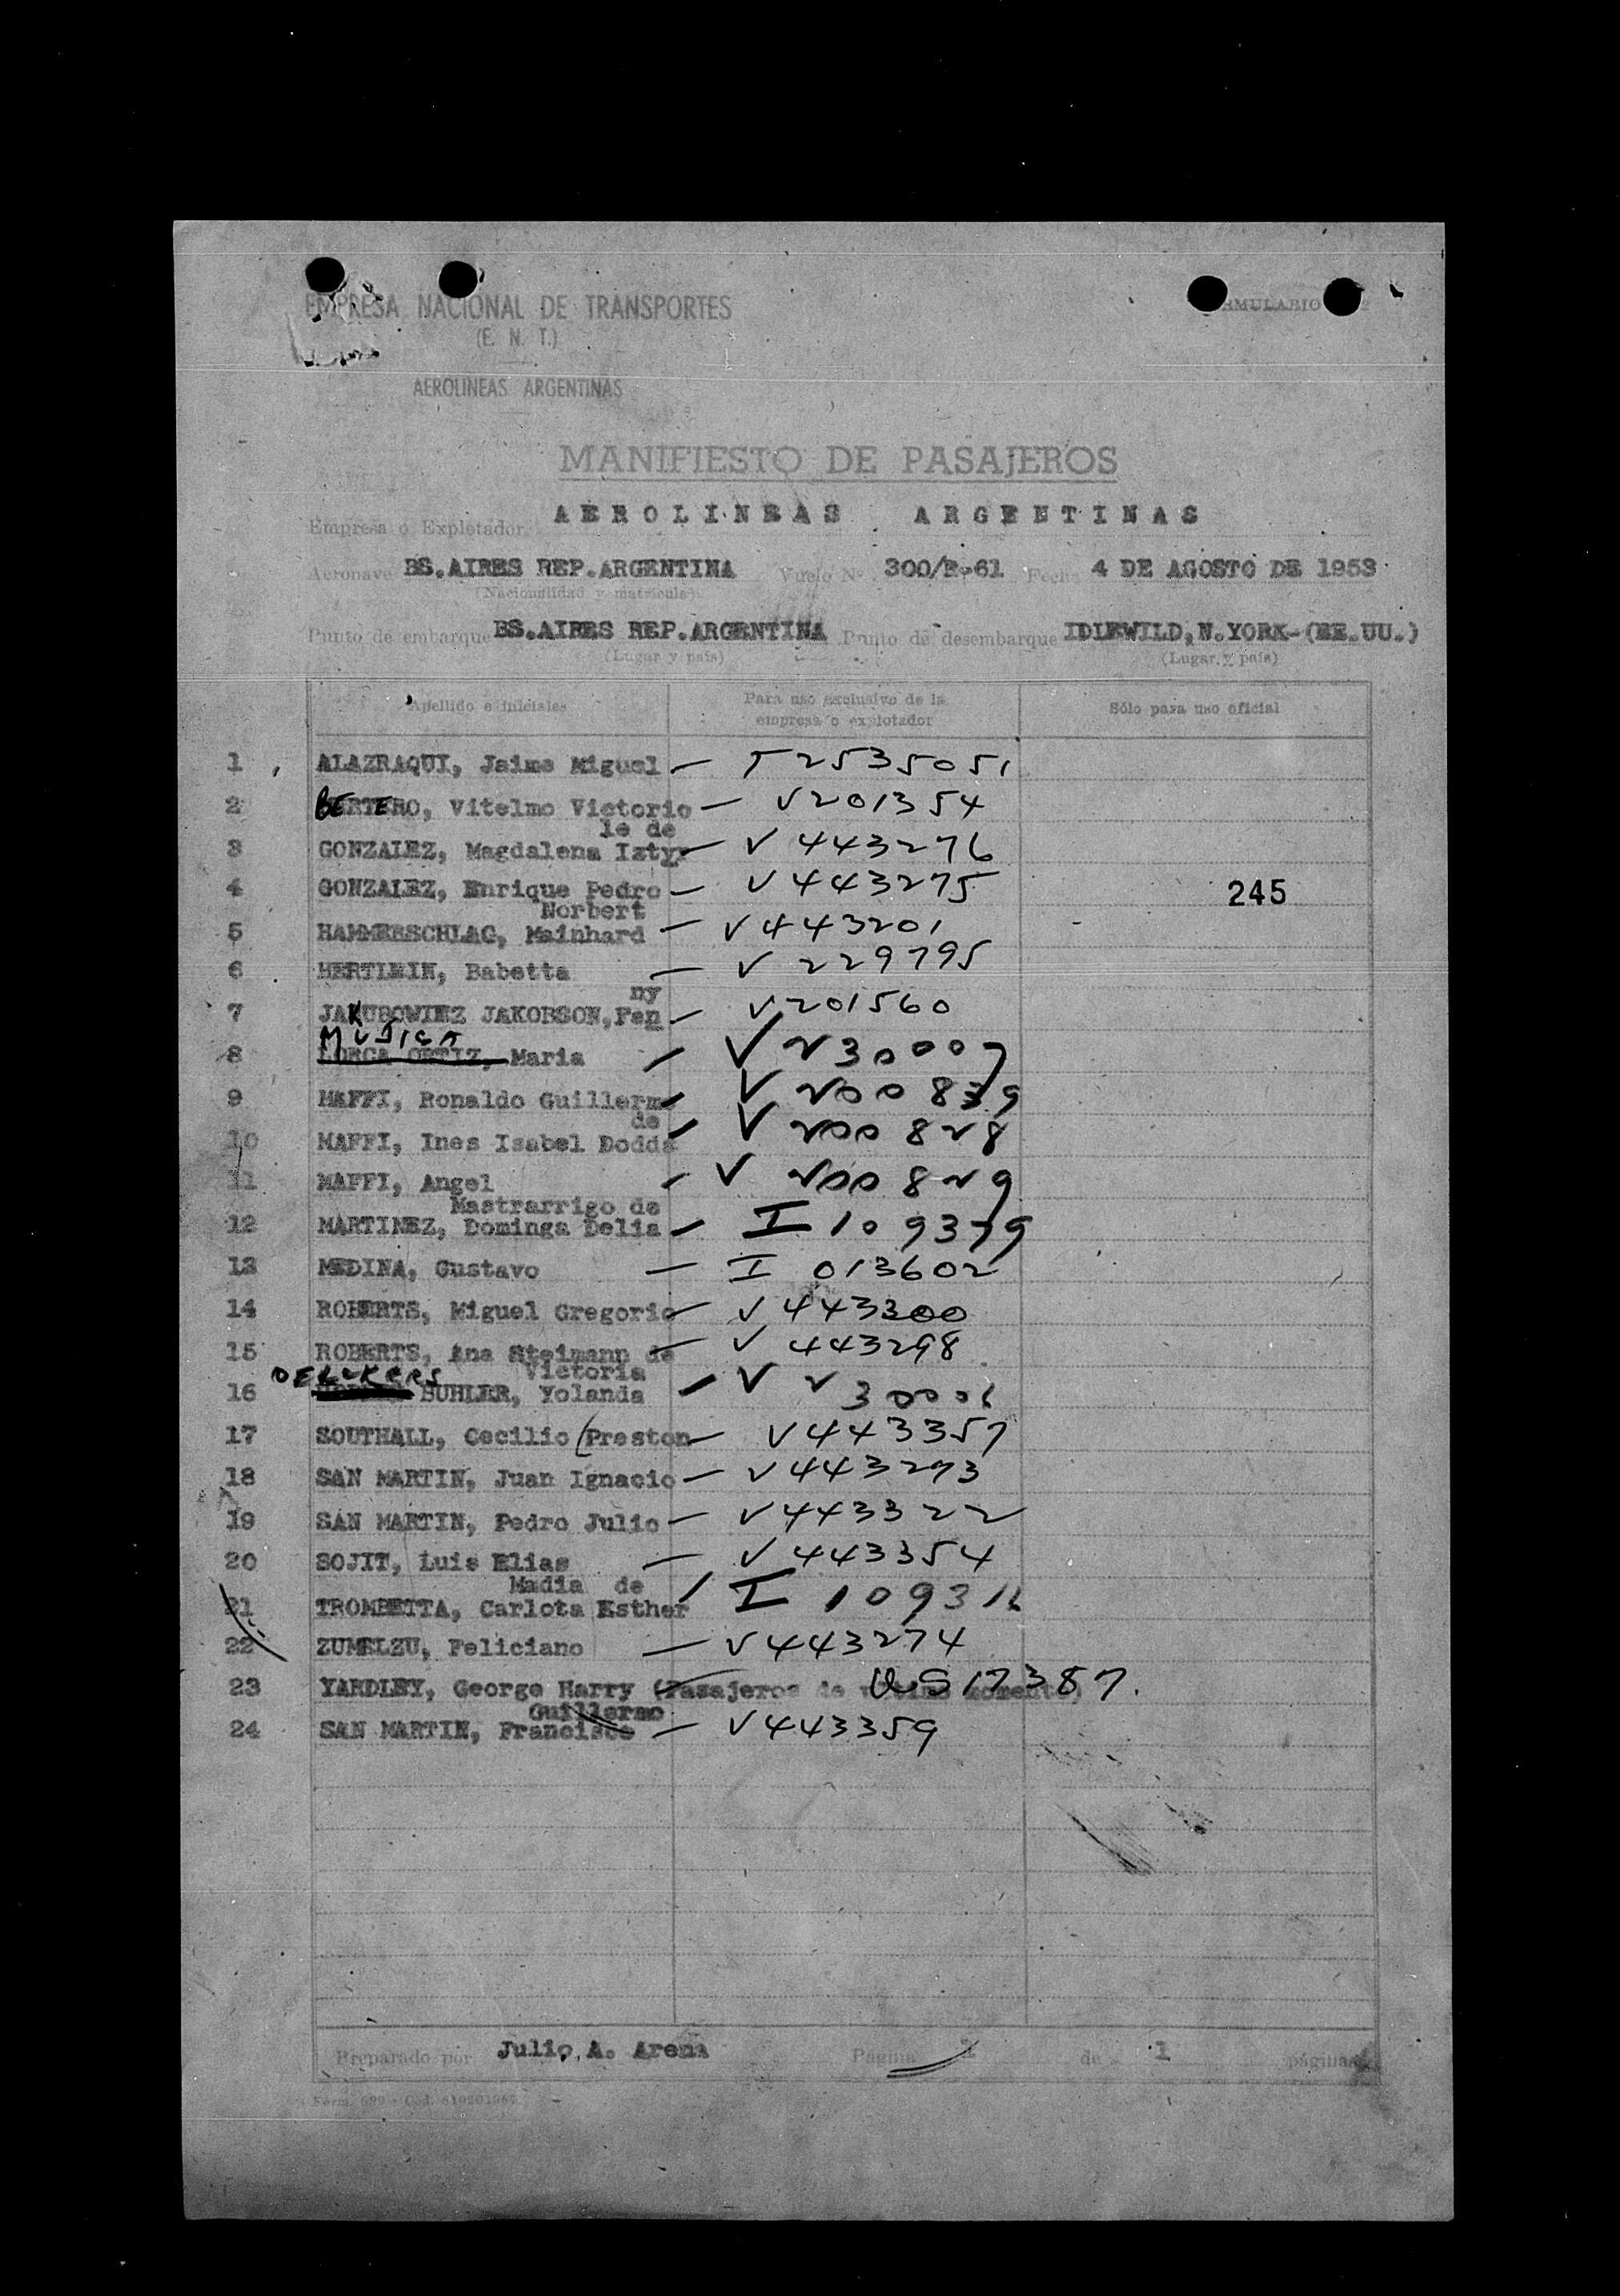 EMPRESA NACIONAL DE TRANSPORTES
(E. N. T.)
AEROLINEAS ARGENTINAS
MANIFIESTO DE PASAJEROS
Empresa o Explotador AEROLINEAS ARGENTINAS
Aeronave BS.AIRES REP.ARGENTINA Vuelo Nº 300/E-61 Fecha 4 DE AGOSTO DE 1953
(Nacionalidad y matrícula)
Punto de embarque BS.AIRES REP.ARGENTINA Punto de desembarque IDLEWILD,N.YORK-(EE.UU.)
(Lugar y país) (Lugar y país)
Apellido e iniciales Para uso exclusivo de la empresa o explotador Sólo para uso oficial
1 ALAZRAQUI, Jaime Miguel — T 2535051
2 BERTERO, Vitelmo Victorio — V201354
le de
3 GONZALEZ, Magdalena Izty — V 443276
4 GONZALEZ, Enrique Pedro — V443275 245
Norbert
5 HAMMERSCHLAG, Mainhard — V443201
6 HERTLEIN, Babetta — V 229795
ny
7 JAKUBOWIEZ JAKOBSON, Fan — V201560
MUJICA
8 LORCA ORTIZ, Maria — V 230007
9 MAFFI, Ronaldo Guillermo — V 200839
de
10 MAFFI, Ines Isabel Dodds — V 200828
11 MAFFI, Angel — V 200829
Mastrarrigo de
12 MARTINEZ, Dominga Delia — I 109379
13 MEDINA, Gustavo — I 013602
14 ROBERTS, Miguel Gregorio — V 443300
15 ROBERTS, Ana Steimann de — V 443298
Victoria
16 BUHLER, Yolanda — V 230006
17 SOUTHALL, Cecilio (Preston — V443357
18 SAN MARTIN, Juan Ignacio — V443273
19 SAN MARTIN, Pedro Julio — V443322
20 SOJIT, Luis Elias — V443354
Madia de
21 TROMBETTA, Carlota Esther I 109316
22 ZUMELZU, Feliciano — V443274
23 YARDLEY, George Harry (Pasajeros de momento) US17387.
Guillermo
24 SAN MARTIN, Francisco — V443359
Preparado por Julio, A. Arena Página 1 de 1 páginas